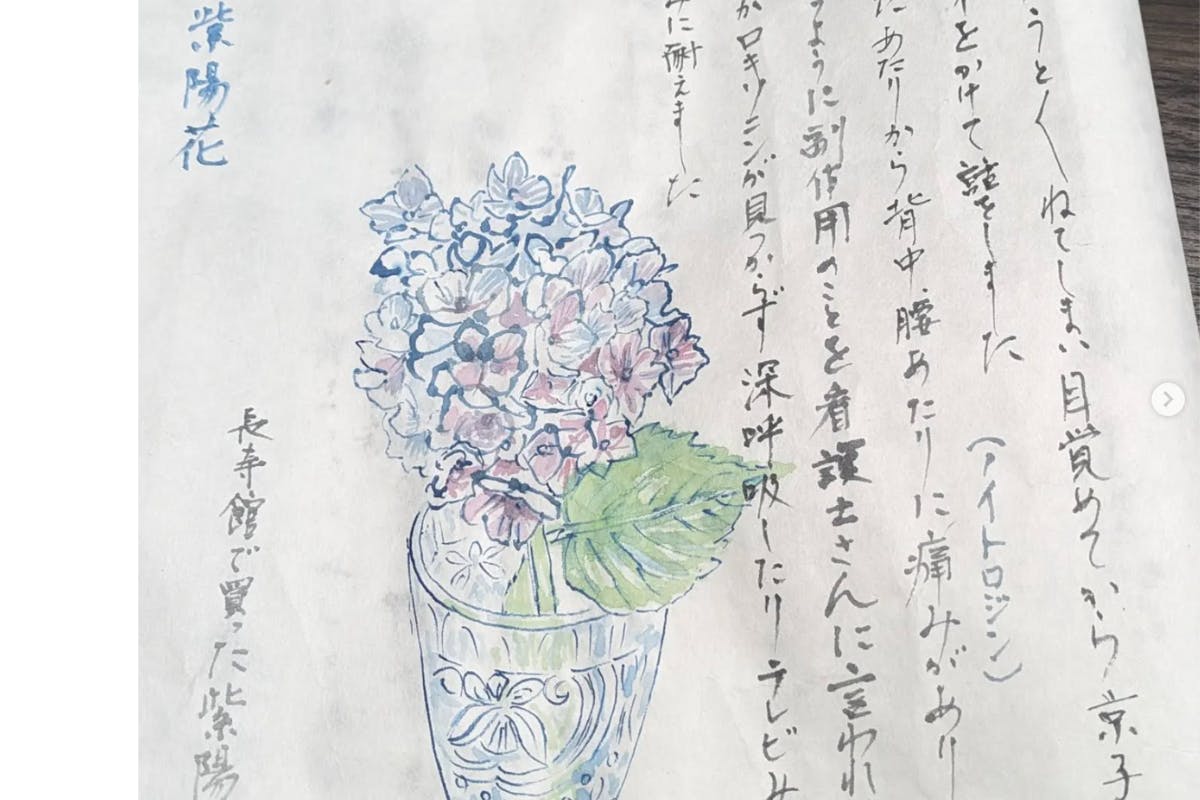 うとくねてしまい目覚めてから京子
をかけて話をしました
(アイトロジン)
にあたりから背中、腰あたりに痛みがあり
ように副作用のことを看護士さんに言われ
かロキソニンが見つからず深呼吸したりテレビみ
みに耐えました
紫陽花
長寺館で買った紫陽